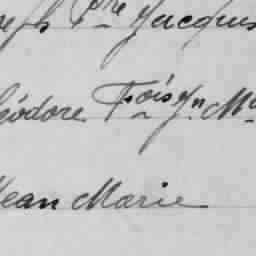 eph Pre Jacques
éodore Fois Jn Ma
Jean Marie